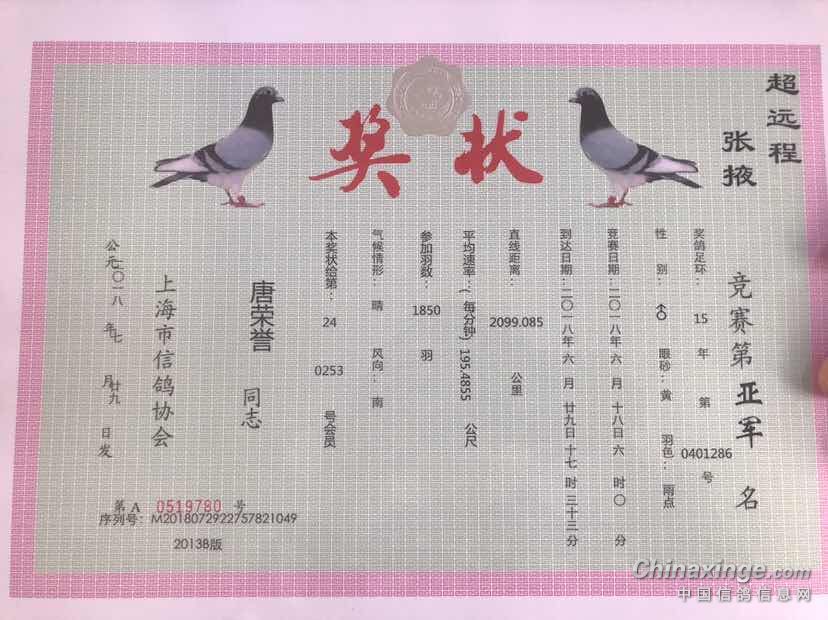 奖状
超远程
张掖
竞赛第亚军名
奖鸽足环：15年第0401286号
性别：♂ 眼砂：黄 羽色：雨点
竞赛日期：二〇一八年六月十八日六时〇分
到达日期：二〇一八年六月廿九日十七时三十三分
直线距离：2099.085公里
平均速率：(每分钟)195.4855公尺
参加羽数：1850羽
气候情形：晴 风向：南
本奖状给第：24 0253号会员
唐荣誉同志
上海市信鸽协会
公元二〇一八年七月廿九日发
第A 0519780 号
序列号：M2018072922757821049
2013B版
Chinaxinge.com
中国信鸽信息网